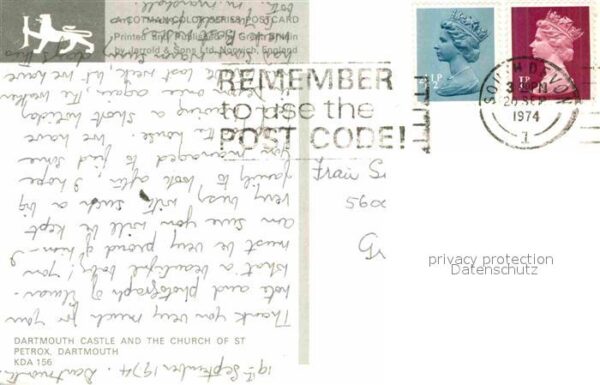 COTMAN-COLOR SERIES POSTCARD
Printed and Published in Great Britain
by Jarrold & Sons Ltd, Norwich, England
REMEMBER
to use the
POST CODE!
½P
1P
SOUTH DEVON
3 PM
20 SEP
1974
1
Frau
560
privacy protection
Datenschutz
DARTMOUTH CASTLE AND THE CHURCH OF ST
PETROX, DARTMOUTH
KDA 156
Dartmouth. 19th September 1974.
Thank you very much for your
note and photograph of
What a beautiful baby! You
must be very proud of him - I
am sure you will be kept
very busy with such a big
family to look after. I hope
you managed to find some
house. We have
having a short holiday
once again. The weather
last week, but we have
had